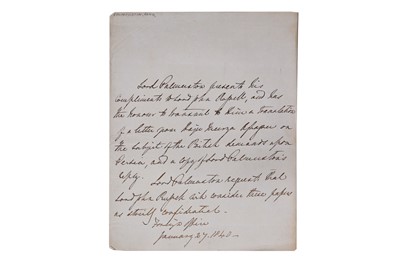 Lord Palmerston presents his
compliments to Lord John Russell, and has
the honour to transmit to him a translation
of a letter from Hajee Meerza Aghassee on
the subject of the British demands upon
Persia, and a copy of Lord Palmerston's
reply.
Lord Palmerston requests that
Lord John Russell will consider these papers
as strictly confidential.
Foreign Office
January 27. 1840